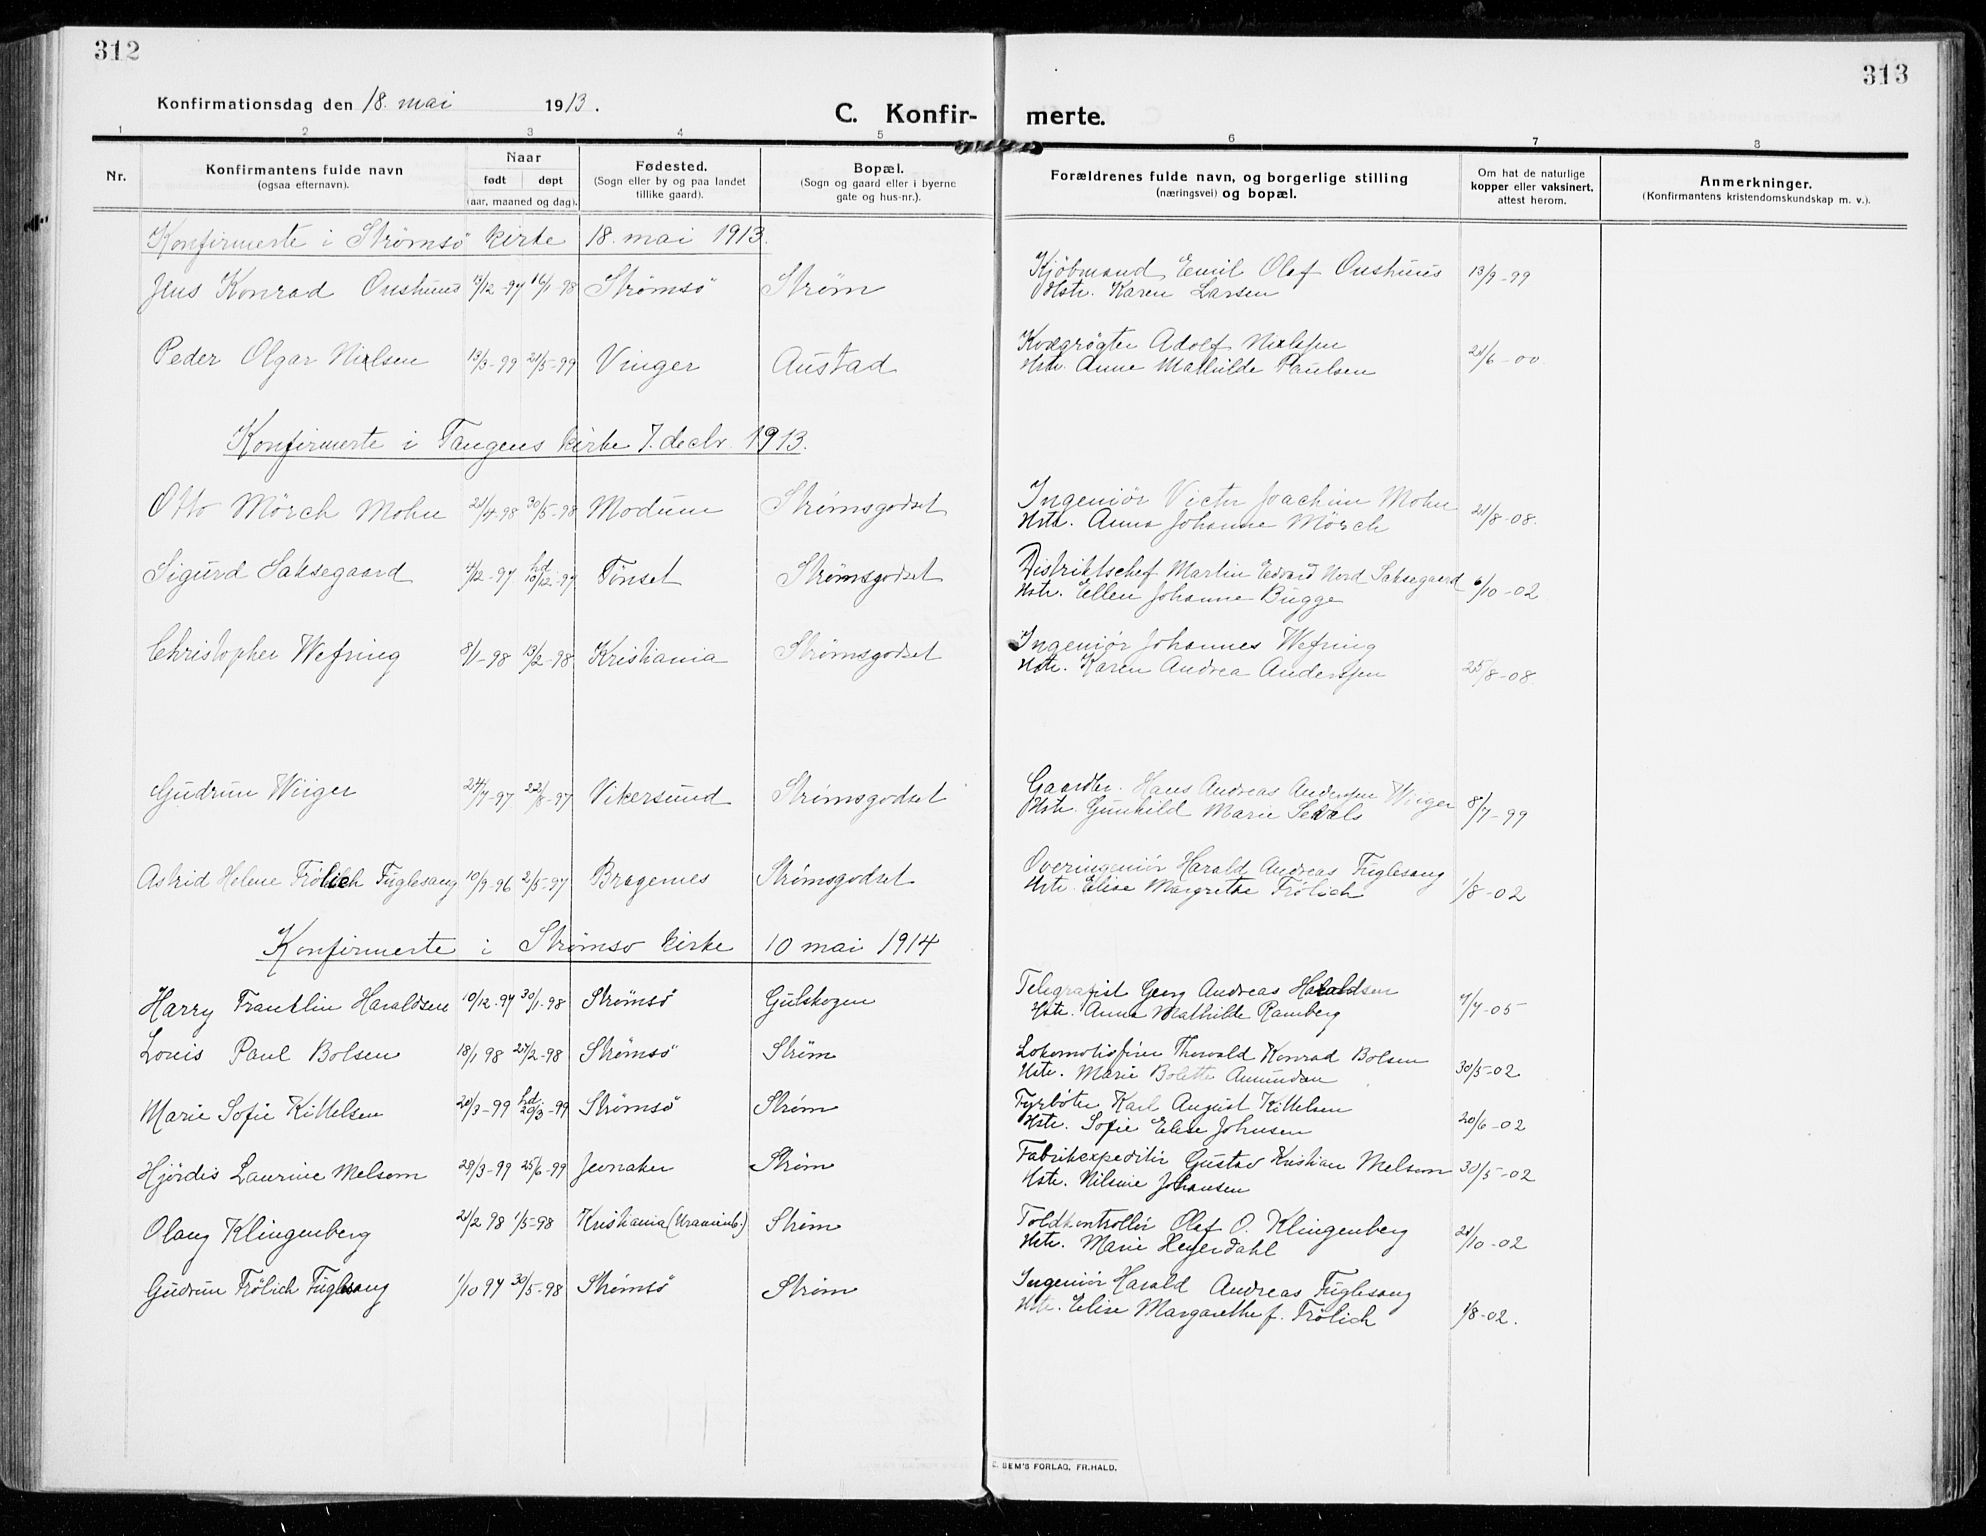 312
313
Konfirmationsdag den 18. mai 1913.
C. Konfir- merte.
1 2 3 4 5 6 7 8
Nr.
Konfirmantens fulde navn
(ogsaa efternavn).
Naar
født døpt
(aar, maaned og dag).
Fødested.
(Sogn eller by og paa landet
tillike gaard).
Bopæl.
(Sogn og gaard eller i byerne
gate og hus-nr.).
Forældrenes fulde navn, og borgerlige stilling
(næringsvei) og bopæl.
Om hat de naturlige
kopper eller vaksinert,
attest herom.
Anmerkninger.
(Konfirmantens kristendomskundskap m. v.).
Konfirmerte i Strømsö kirke 18. mai 1913.
Jens Konrad Onshuus 13/12-97 16/1-98 Strømsö Strøm Kjöbmand Emil Olaf Onshuus 13/9-99
Hstr. Karen Larsen
Peder Olgar Nielsen 13/3-99 21/5-99 Vinger Austad Kvægrøgter Adolf Nielsen 21/6-00
Hstr. Anne Mathilde Paulsen
Konfirmerte i Tangens kirke 7. decbr. 1913.
Otto Mörch Mohn 21/4-98 30/5-98 Modum Strømsgodset Ingeniör Victor Joachim Mohn 21/8-08.
Hstr. Anna Johanne Mörch
Sigurd Saksegaard 4/12-97 hd. 10/12-97 Tönset Strømsgodset Distriktschef Martin Edvard Nord Saksegaard 6/10-02
Hstr. Ellen Johanne Bugge
Christopher Wefring 8/1-98 13/2-98 Kristiania Strømsgodset Ingeniør Johannes Wefring 25/8-08.
Hstr. Karen Andrea Anderssen
Gudrun Wiiger 24/7-97 22/8-97 Vikersund Strømsgodset Gaardbr. Hans Andreas Anderssen Wiiger 8/7-99
Hstr. Gunhild Marie
Astrid Helene Frölich Fuglesang 10/9-96 2/5-97 Bragernes Strømsgodset Overingeniör Harald Andreas Fuglesang 1/8-02
Hstr. Elise Margrethe Frölich
Konfirmerte i Strømsö kirke 10 mai 1914
Harry Franklin Haraldsen 10/12-97 30/1-98 Strömsö Gulskogen Telegrafist Georg Andreas Haraldsen 7/7-05
Hstr. Anna Mathilde Ramberg
Louis Paul Bolsen 18/1 98 27/2-98 Strömsö Ström Lokomotivfører Thorvald Konrad Bolsen 30/5-02
Hstr. Marie Bolette Amundsen
Marie Sofie Kittelsen 20/3-99 hd. 20/3-99 Strömsö Strøm Fyrböter Karl August Kittelsen 20/6-02
Hstr. Sofie Elise Johnsen
Hjördis Laurine Melsom 28/3-99 25/6-99 Jevnaker Strøm Fabrikexpeditör Gustav Kristian Melsom 30/5-02
Hstr. Nilsine Johansen
Olaug Klingenberg 21/2 98 1/5-98 Kristiania (Uranienb.) Strøm Toldkontrollör Olaf O. Klingenberg 21/10-02
Hstr. Marie Heyerdahl
Gudrun Frölich Fuglesang 1/10 97 30/5-98 Strømsö Strøm Ingeniör Harald Andreas Fuglesang 1/8-02.
Hstr. Elise Margarethe f. Frölich
BEM'S FORLAG, FR. HALD.